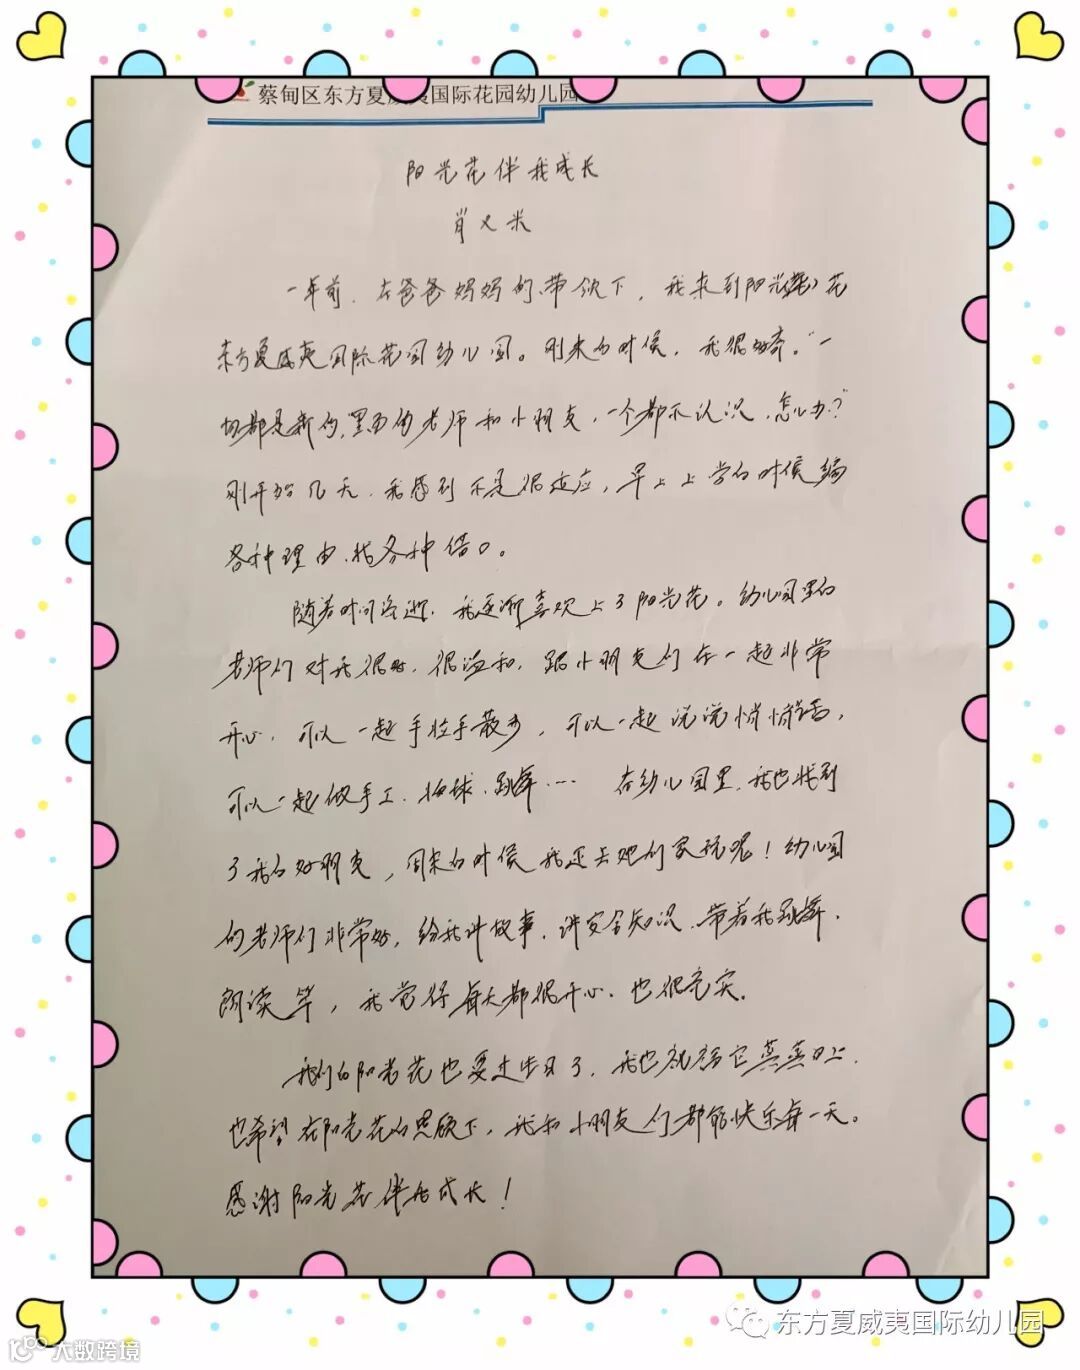 蔡甸区东方夏威夷国际花园幼儿园
阳光花伴我成长
肖义米
一年前，在爸爸妈妈的带领下，我来到阳光花
东方夏威夷国际花园幼儿园。刚来的时候，我很好奇。“一
切都是新的，里面的老师和小朋友，一个都不认识，怎么办？”
刚开始几天，我感到不是很适应，早上上学的时候编
各种理由，找各种借口。
随着时间流逝，我逐渐喜欢上了阳光花。幼儿园里的
老师们对我很好，很温和，跟小朋友们在一起非常
开心，可以一起手拉手散步，可以一起说说悄悄话，
可以一起做手工、拍球、跳舞…… 在幼儿园里，我也找到
了我的好朋友，周末的时候我还去她们家玩呢！幼儿园
的老师们非常好，给我讲故事、讲安全知识、带着我跳舞、
朗读等，我觉得每天都很开心、也很充实。
我们的阳光花也要过生日了，我也祝福它蒸蒸日上，
也希望在阳光花的照顾下，我和小朋友们都能快乐每一天。
感谢阳光花伴我成长！
东方夏威夷国际幼儿园
大数跨境